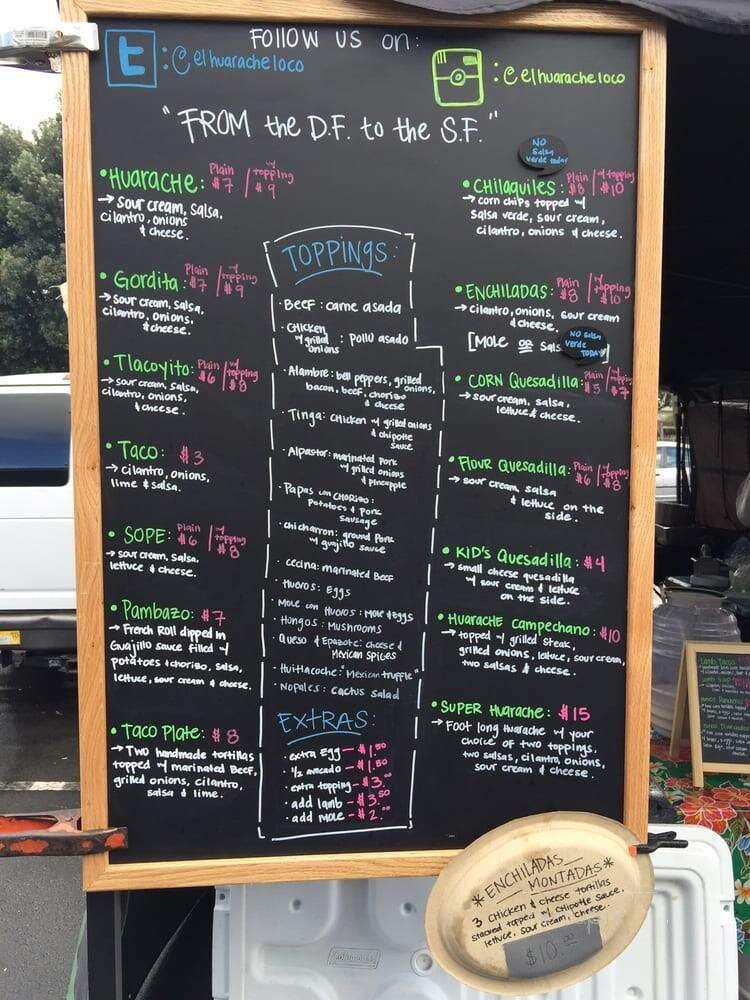 FOLLOW US on:
t : @elhuaracheloco
: @elhuaracheloco
"FROM the D.F. to the S.F."
•HUARACHE: Plain $7 / w/ topping $9
→ sour cream, salsa,
cilantro, onions
& cheese.
• Gordita: Plain $7 / w/ topping $9
→ sour cream, salsa,
cilantro, onions,
& cheese.
• Tlacoyito: Plain $6 / w/ topping $8
→ sour cream, salsa,
cilantro, onions,
& cheese.
• Taco: $3
→ cilantro, onions,
lime & salsa.
• SOPE: Plain $6 / w/ topping $8
→ sour cream, salsa,
lettuce & cheese.
• Pambazo: $7
→ French Roll dipped in
Guajillo sauce filled w/
potatoes & chorizo, salsa,
lettuce, sour cream & cheese.
• Taco Plate: $8
→ TWO handmade tortillas
topped w/ marinated Beef,
grilled onions, cilantro,
salsa & lime.
TOPPINGS:
• Beef: carne asada
• Chicken w/ grilled onions : Pollo asado
• Alambre: bell peppers, grilled onions,
bacon, beef, chorizo
& cheese
• Tinga: Chicken w/ grilled onions
& chipotle
sauce
• Alpastor: marinated Pork
w/ grilled onions
& pineapple
• Papas con Chorizo:
Potatoes & Pork
Sausage
• chicharron: ground Pork
w/ guajillo sauce
• cecina: marinated Beef
• Huevos: Eggs
• Mole con Huevos: Mole & Eggs
• Hongos: Mushrooms
• Queso & Epazote: cheese &
Mexican spices
• Huitlacoche: "Mexican truffle"
• Nopales: cactus salad
EXTRAS:
• extra Egg — $1.50
• 1/2 avocado — $1.50
• extra topping — $3.00
• add lamb — $3.50
• add mole — $2.00
NO
Salsa
verde today
• CHILAQUILES: Plain $8 / w/ topping $10
→ corn chips topped w/
salsa verde, sour cream,
cilantro, onions & cheese.
• ENCHILADAS: Plain $8 / w/ topping $10
→ cilantro, onions, sour cream
& cheese.
[Mole OR Sals
NO Salsa
verde
TODAY
• CORN Quesadilla: Plain $5 / w/ topping $7
→ sour cream, salsa,
lettuce & cheese.
• Flour Quesadilla: Plain $6 / w/ topping $8
→ sour cream, salsa
& lettuce on the
side.
• KID'S Quesadilla: $4
→ small cheese quesadilla
w/ sour cream & lettuce
on the side.
• HUARACHE Campechano: $10
→ topped w/ grilled steak,
grilled onions, lettuce, sour cream,
two salsas & cheese.
• SUPER Huarache: $15
→ Foot long huarache w/ your
choice of two toppings,
two salsas, cilantro, onions,
sour cream & cheese.
*ENCHILADAS
MONTADAS*
3 chicken & cheese tortillas
stacked topped w/ chipotle sauce,
lettuce, sour cream, cheese.
$10.00
Lamb Tacos